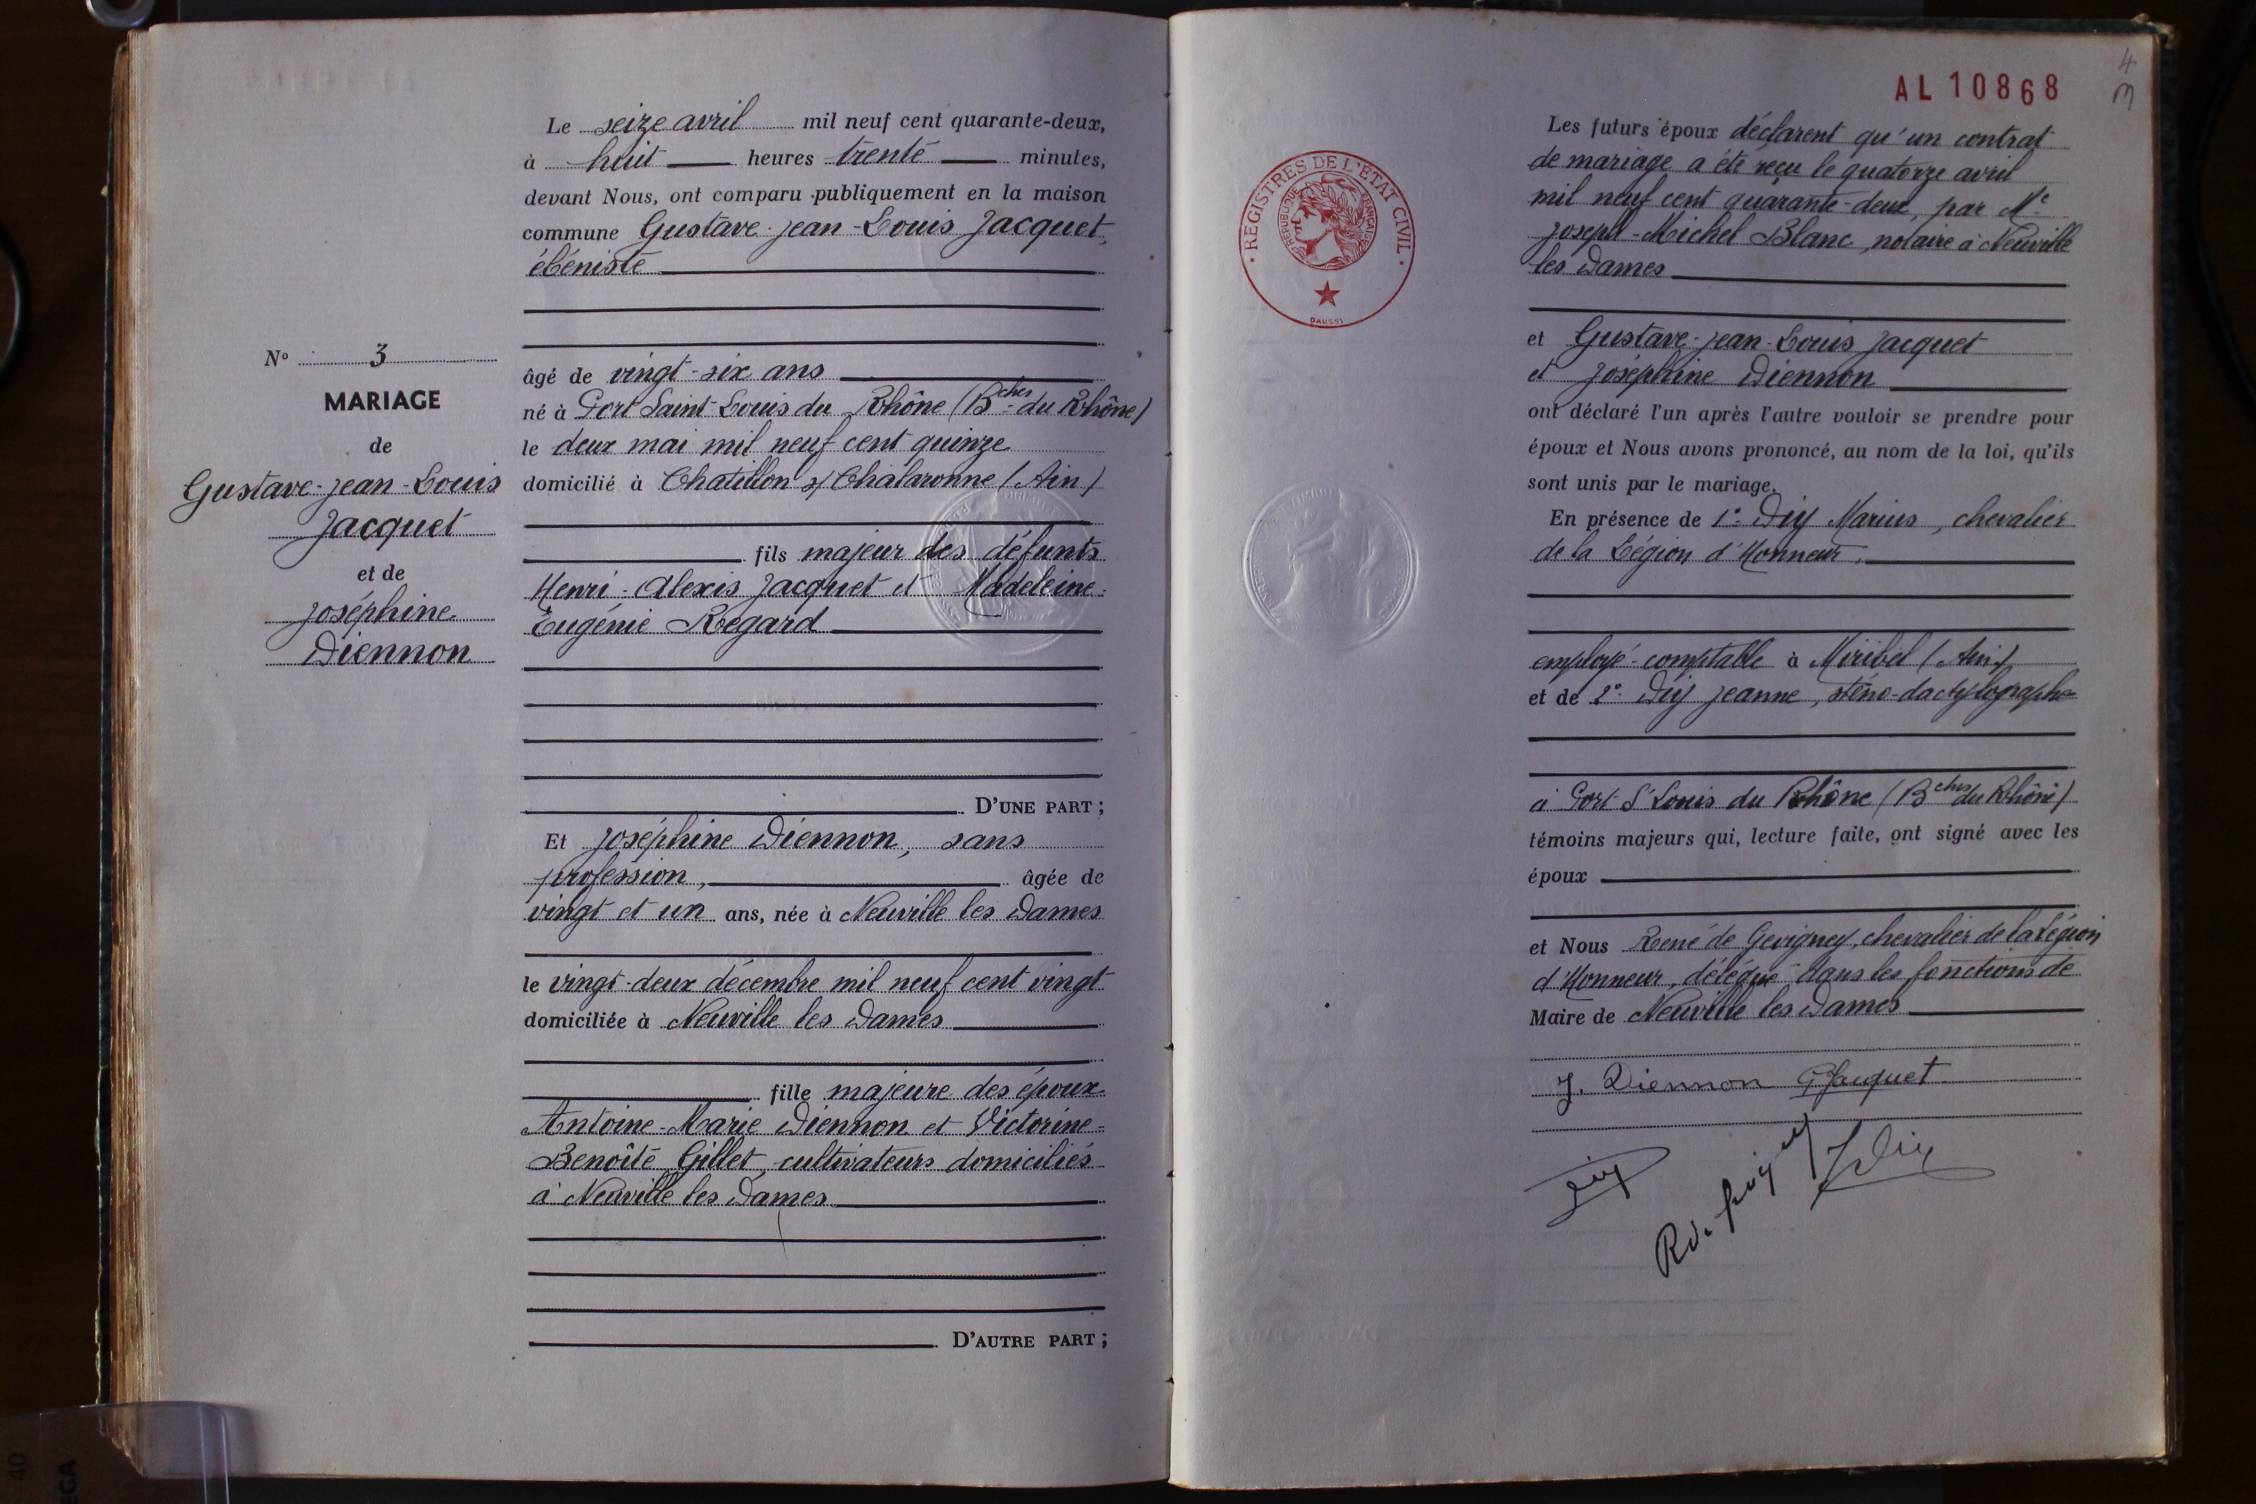 N° 3
MARIAGE
de
Gustave-Jean-Louis
Jacquet
et de
Joséphine
Diennon
Le seize avril mil neuf cent quarante-deux,
à huit heures trente minutes,
devant Nous, ont comparu publiquement en la maison
commune Gustave-Jean-Louis Jacquet,
ébéniste
âgé de vingt-six ans
né à Port Saint-Louis du Rhône (Bches du Rhône)
le deux mai mil neuf cent quinze
domicilié à Chatillon s/ Chalaronne (Ain)
fils majeur des défunts
Henri-Alexis Jacquet et Madeleine-
Eugénie Regard
D'UNE PART ;
Et Joséphine Diennon, sans
profession, âgée de
vingt et un ans, née à Neuville les Dames
le vingt-deux décembre mil neuf cent vingt
domiciliée à Neuville les Dames
fille majeure des époux
Antoine-Marie Diennon et Victorine-
Benoîte Gillet, cultivateurs domiciliés
à Neuville les Dames
D'AUTRE PART ;
4
3
AL 10868
REGISTRES DE L'ETAT CIVIL
REPUBLIQUE FRANÇAISE
DAUSSI
Les futurs époux déclarent qu'un contrat
de mariage a été reçu le quatorze avril
mil neuf cent quarante-deux, par Me
Joseph-Michel Blanc, notaire à Neuville
les Dames
et Gustave-Jean-Louis Jacquet
et Joséphine Diennon
ont déclaré l'un après l'autre vouloir se prendre pour
époux et Nous avons prononcé, au nom de la loi, qu'ils
sont unis par le mariage.
En présence de 1° Diy Marius, chevalier
de la Légion d'Honneur,
employé-comptable à Miribel (Ain)
et de 2° Diy Jeanne, sténo-dactylographe
à Port St Louis du Rhône (Bches du Rhône)
témoins majeurs qui, lecture faite, ont signé avec les
époux
et Nous René de Gevigney, chevalier de la Légion
d'Honneur, délégué dans les fonctions de
Maire de Neuville les Dames
J. Diennon GJacquet